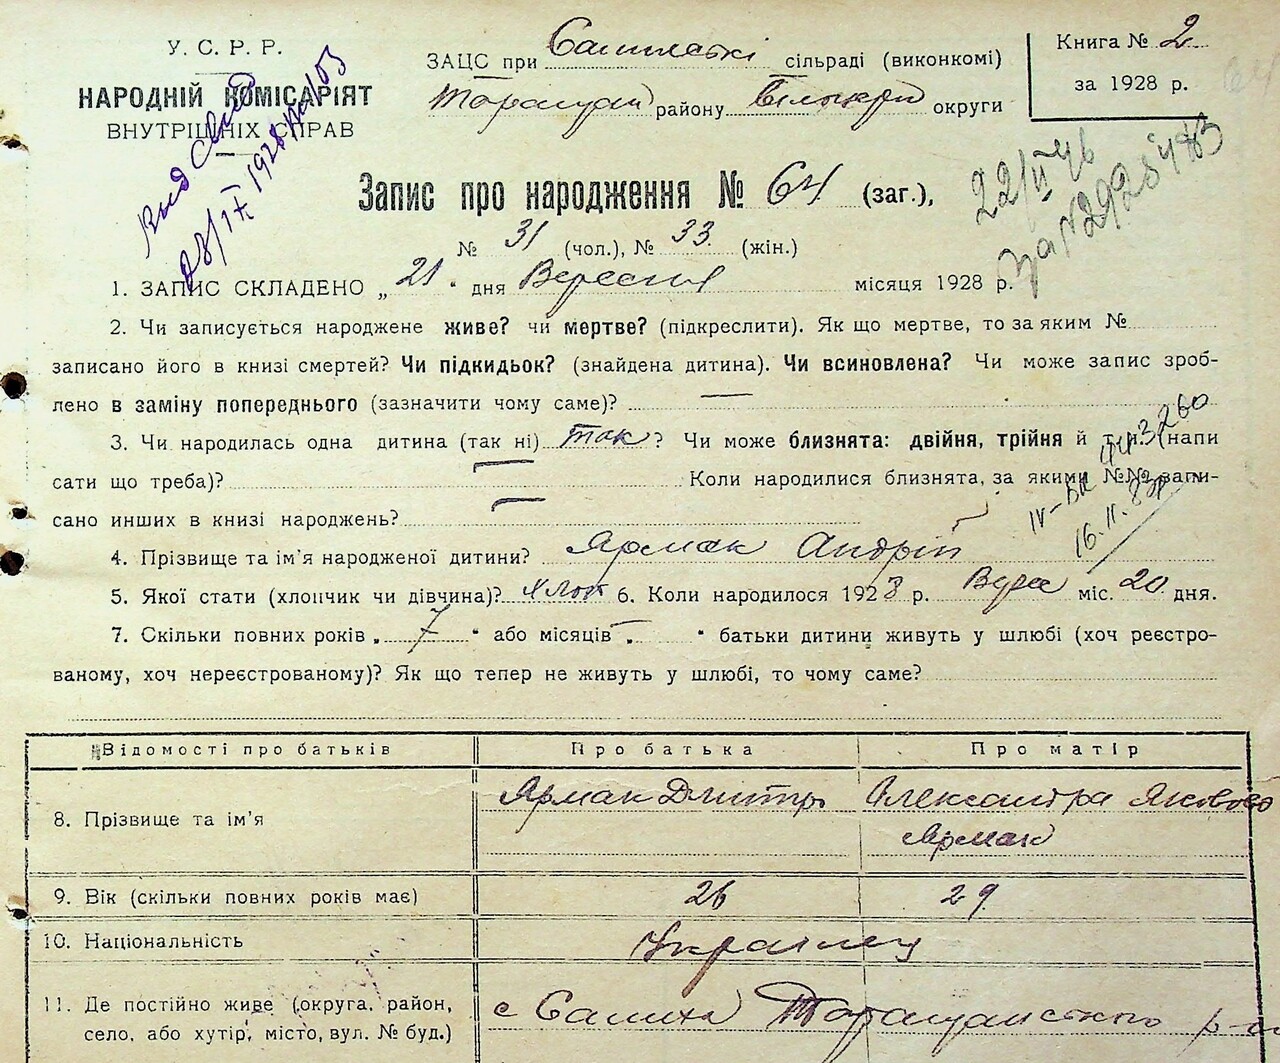 У. С. Р. Р.
НАРОДНІЙ КОМІСАРІЯТ
ВНУТРІШНІХ СПРАВ
ЗАЦС при сільраді (виконкомі)
району округи
Книга № 2
за 1928 р.
64
Запис про народження № 64 (заг.),
№ 31 (чол.), № 33 (жін.)
1. ЗАПИС СКЛАДЕНО „21" дня Вересня місяця 1928 р.
2. Чи записується народжене живе? чи мертве? (підкреслити). Як що мертве, то за яким №
записано його в книзі смертей? Чи підкидьок? (знайдена дитина). Чи всиновлена? Чи може запис зроб-
лено в заміну попереднього (зазначити чому саме)? —
3. Чи народилась одна дитина (так ні) так? Чи може близнята: двійня, трійня й т. п. (напи
сати що треба)? — Коли народилися близнята, за якими №№ запи-
сано инших в книзі народжень? —
4. Прізвище та ім'я народженої дитини? Ярмак Андрій
5. Якої стати (хлопчик чи дівчина)? хлоп 6. Коли народилося 1928 р. Вере міс. 20 дня.
7. Скільки повних років „7" або місяців „—" батьки дитини живуть у шлюбі (хоч реєстро-
ваному, хоч нереєстрованому)? Як що тепер не живуть у шлюбі, то чому саме?
Відомості про батьків Про батька Про матір
8. Прізвище та ім'я Ярмак Дмитро Олександра Яковово
Ярмак
9. Вік (скільки повних років має) 26 29
10. Національність Українец
11. Де постійно живе (округа, район,
село, або хутір, місто, вул. № буд.) с Салиха Таращанського р-
16.11.83